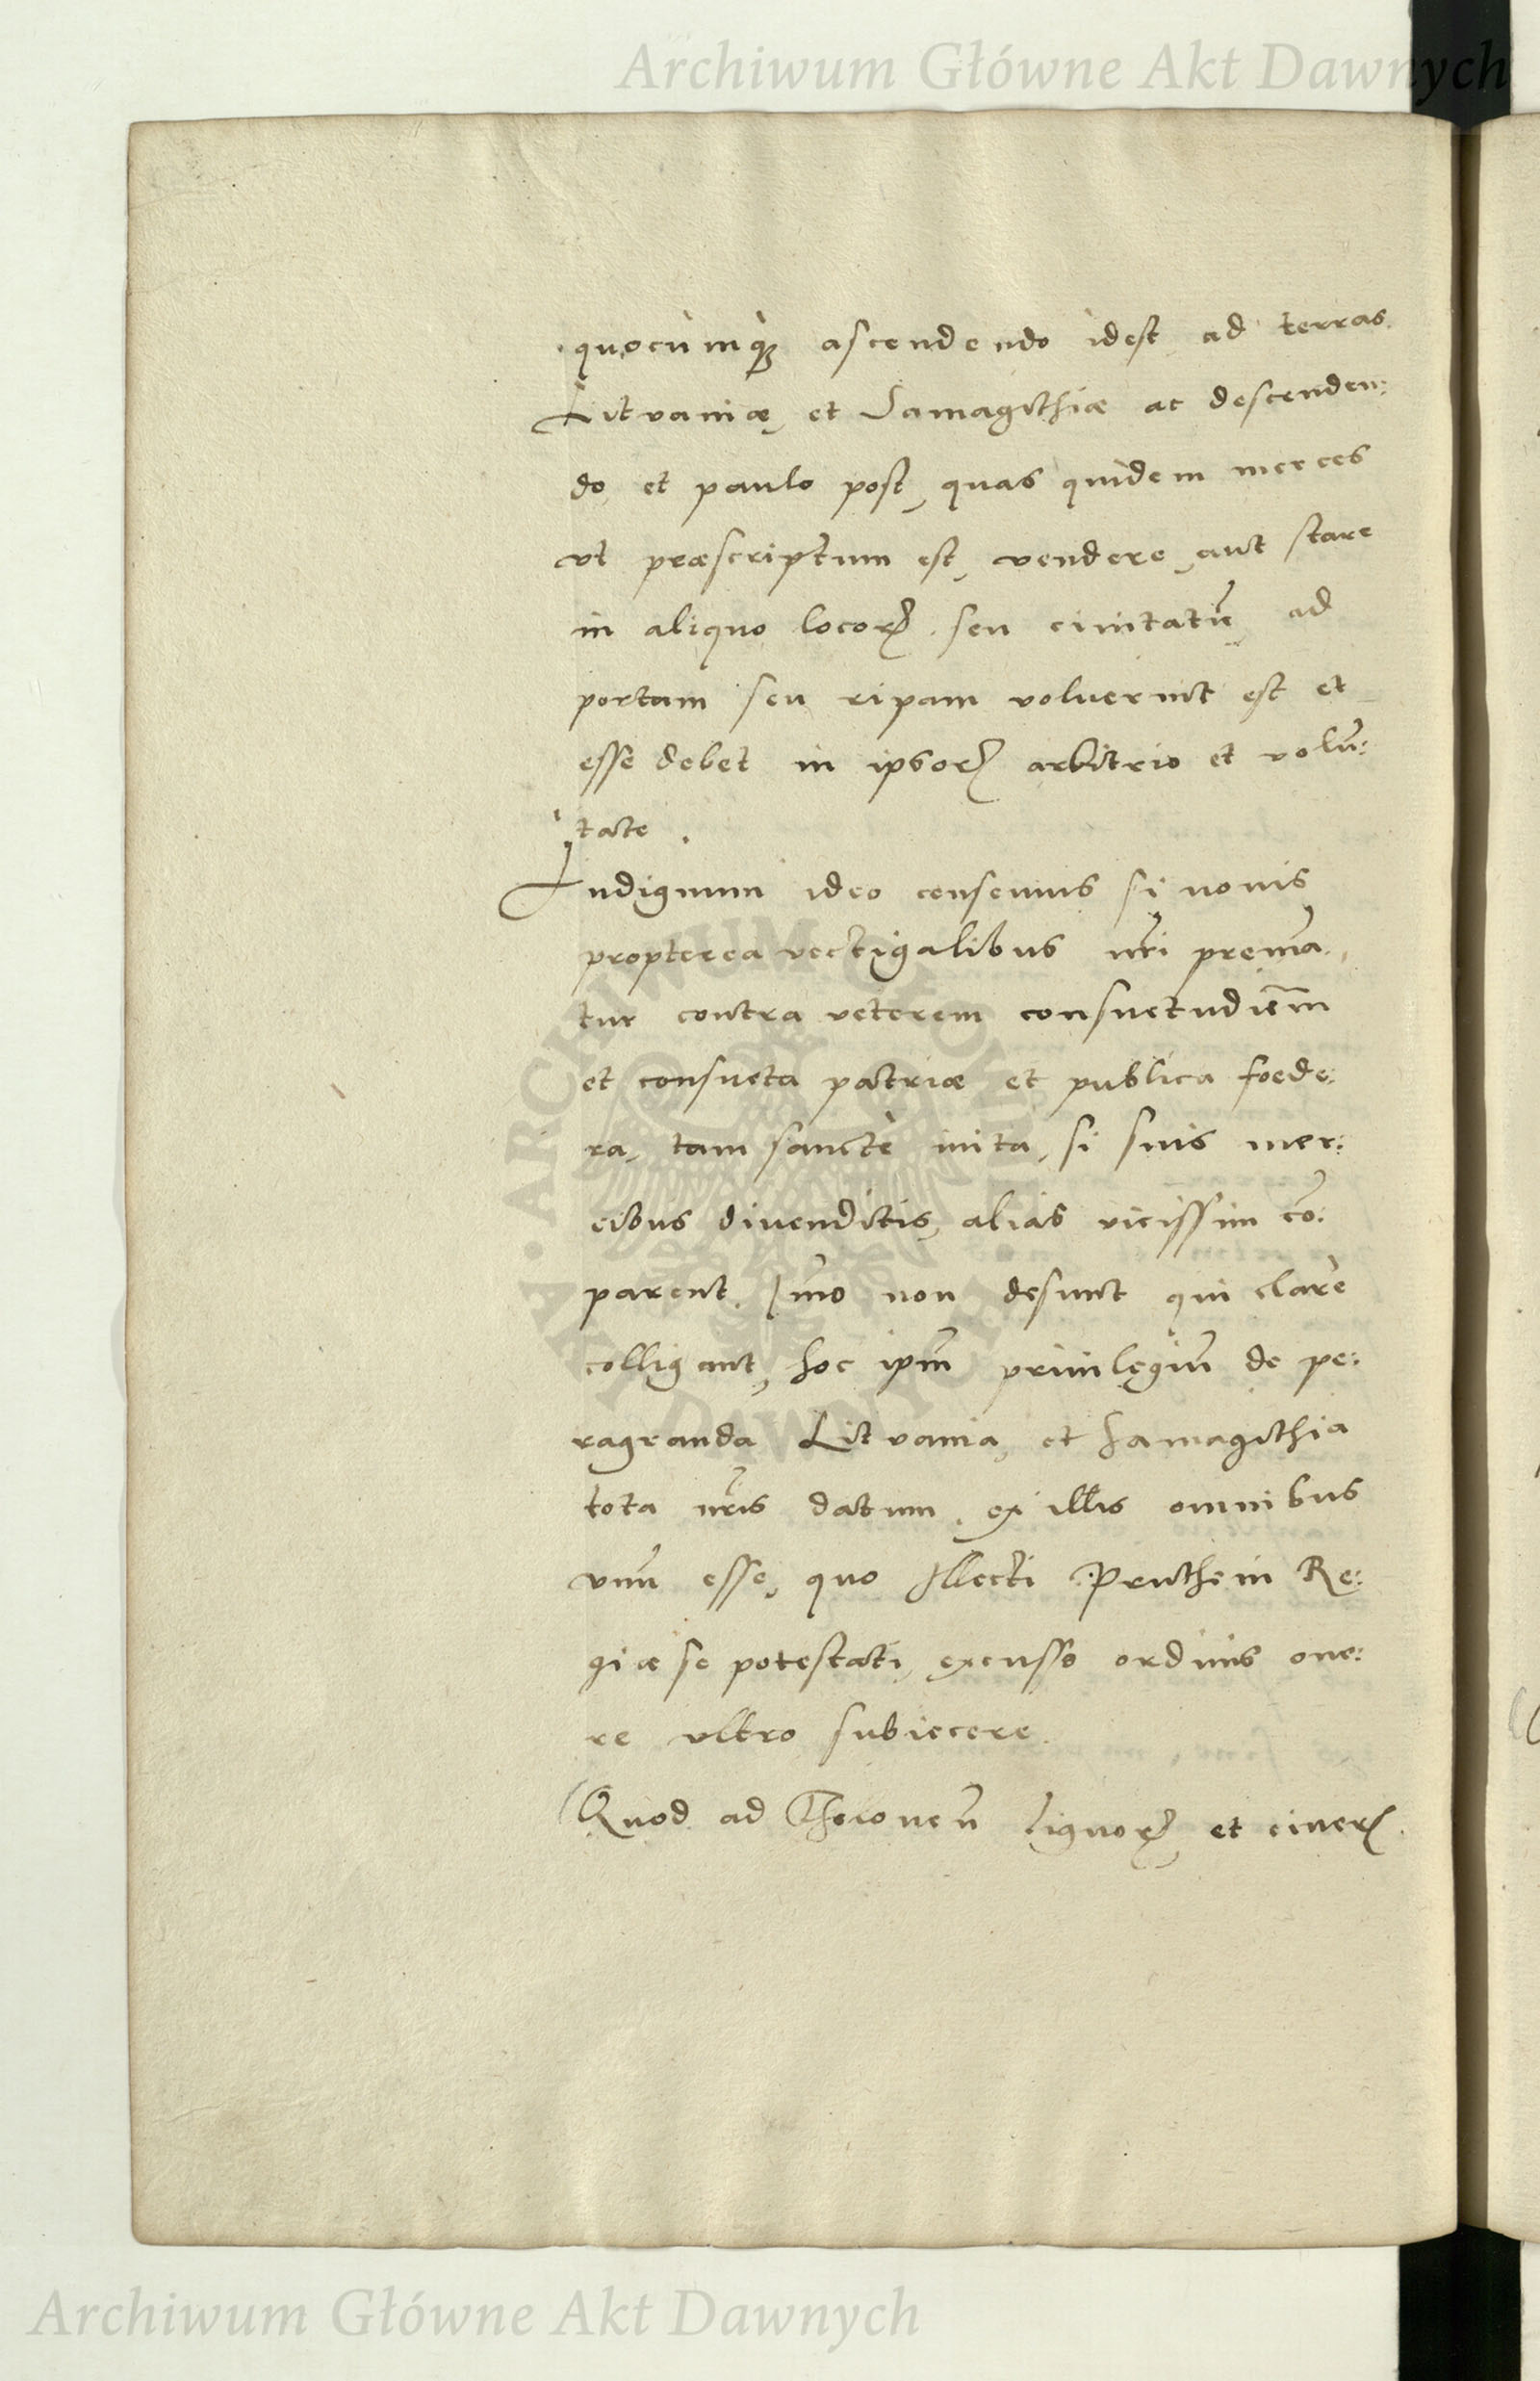 Archiwum Główne Akt Dawnych
quocunq₃ ascendendo idest ad terras
Litvaniæ, et Samagithiæ ac descenden:
do, et paulo post, quas quidem merces
vt præscriptum est, vendere, aut stare
in aliquo locorꝝ seu ciuitatũ, ad
portam seu ripam voluerint est et
esse debet in ipsorꝝ arbitrio et volũ:
tate.
Indignum ideo censemus si nouis
propterea vectigalibus nr̃i premã
tur contra veterem consuetudiẽm
et consueta patriæ et publica foede:
ra, tam sanctè inita, si suis mer:
cibus diuenditis, alias vicissim cõ:
parent. Imo non desunt qui clarè
colligant, hoc ipm̃ priuilegiũ de pe:
ragranda Litvania, et Samagithia
tota nr̃is datum, ex illis omnibus
vnũ esse, quo Illecti Prutheni Re:
giæ se potestati, excusso ordinis one:
re vltro subiecere.
Quod ad Theloneũ lignorꝝ et cinerꝝ
ARCHIWUM GŁÓWNE AKT DAWNYCH
Archiwum Główne Akt Dawnych